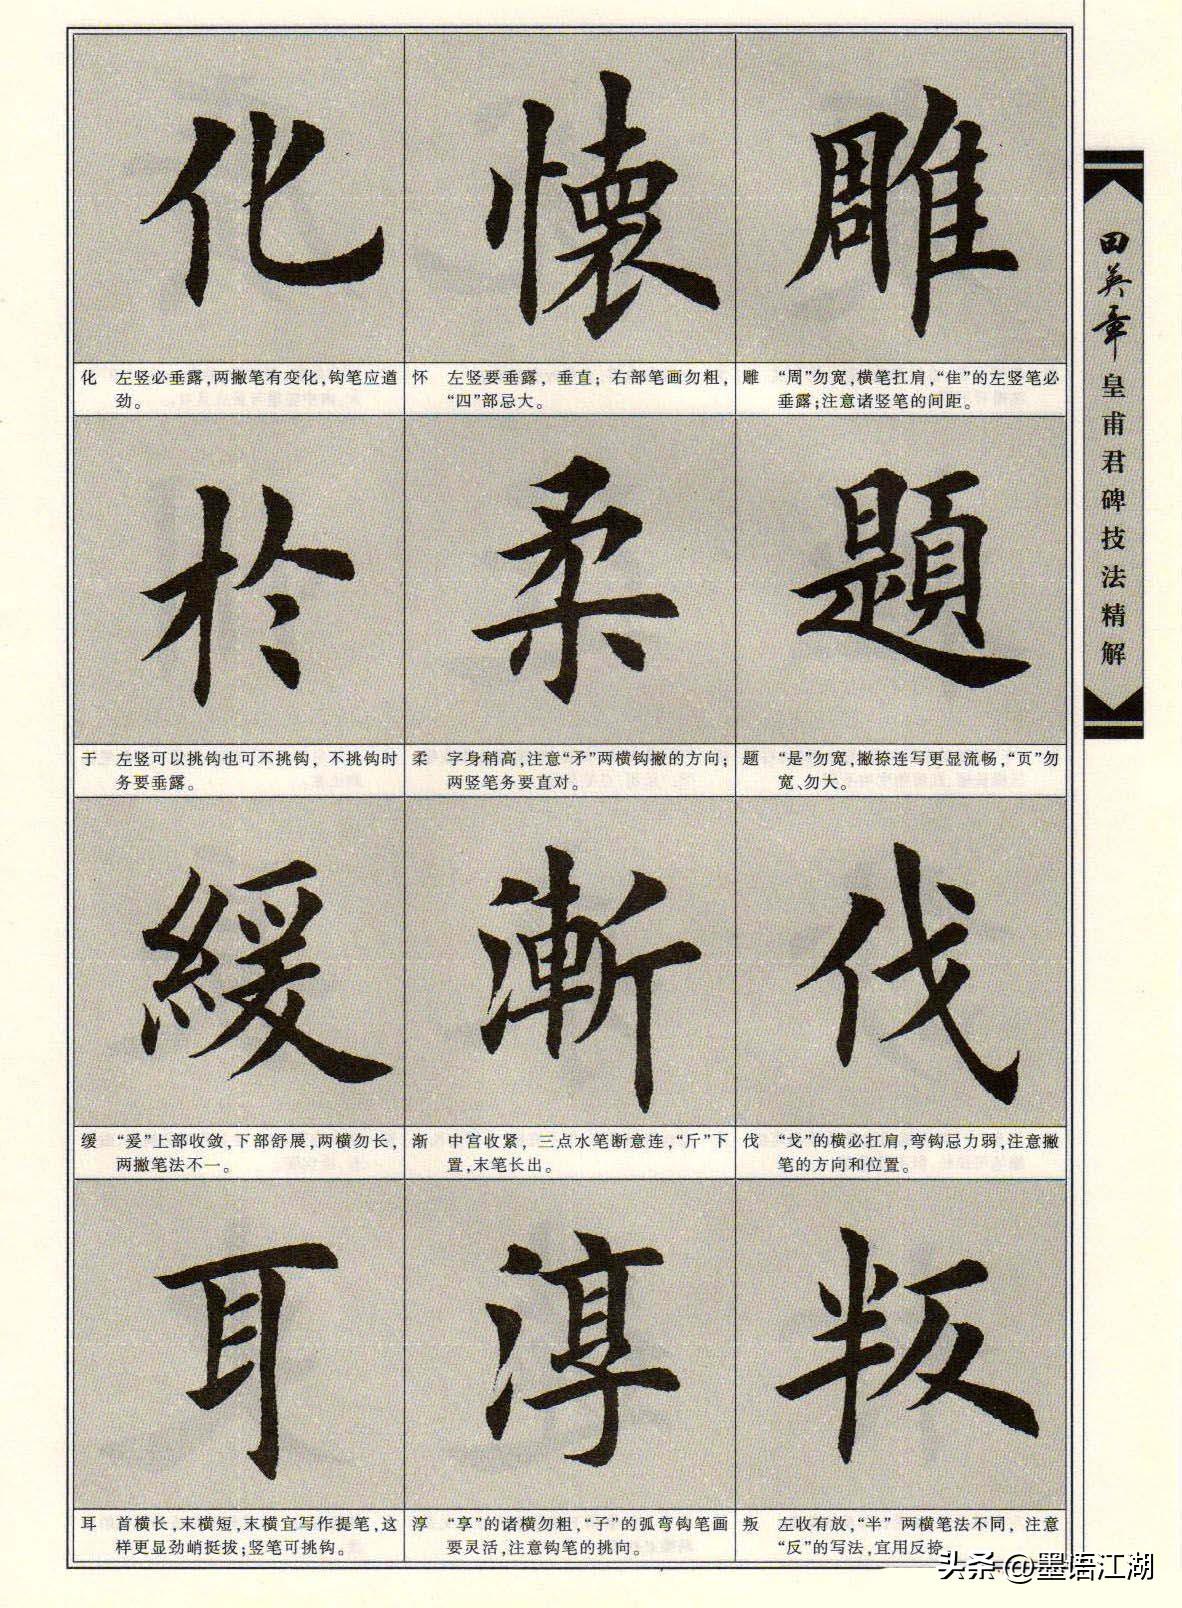 化
懷
雕
化 左竖必垂露,两撇笔有变化,钩笔应遒
劲。
怀 左竖要垂露，垂直；右部笔画勿粗，
“四”部忌大。
雕 “周”勿宽,横笔扛肩,“隹”的左竖笔必
垂露;注意诸竖笔的间距。
於
柔
題
于 左竖可以挑钩也可不挑钩，不挑钩时
务要垂露。
柔 字身稍高,注意“矛”两横钩撇的方向;
两竖笔务要直对。
题 “是”勿宽,撇捺连写更显流畅,“页”勿
宽、勿大。
緩
漸
伐
缓 “爰”上部收敛,下部舒展,两横勿长,
两撇笔法不一。
渐 中宫收紧，三点水笔断意连,“斤”下
置,末笔长出。
伐 “戈”的横必扛肩,弯钩忌力弱,注意撇
笔的方向和位置。
耳
淳
叛
耳 首横长,末横短,末横宜写作提笔,这
样更显劲峭挺拔;竖笔可挑钩。
淳 “享”的诸横勿粗,“子”的弧弯钩笔画
要灵活,注意钩笔的挑向。
叛 左收有放,“半”两横笔法不同，注意
“反”的写法,宜用反捺。
田英章皇甫君碑技法精解
头条 @墨语江湖